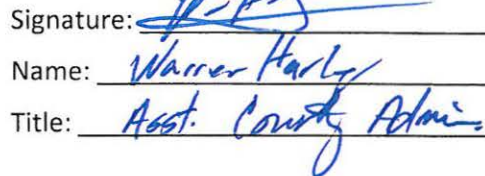 Signature:
Name: Warren Harley
Title: Asst. County Admin.